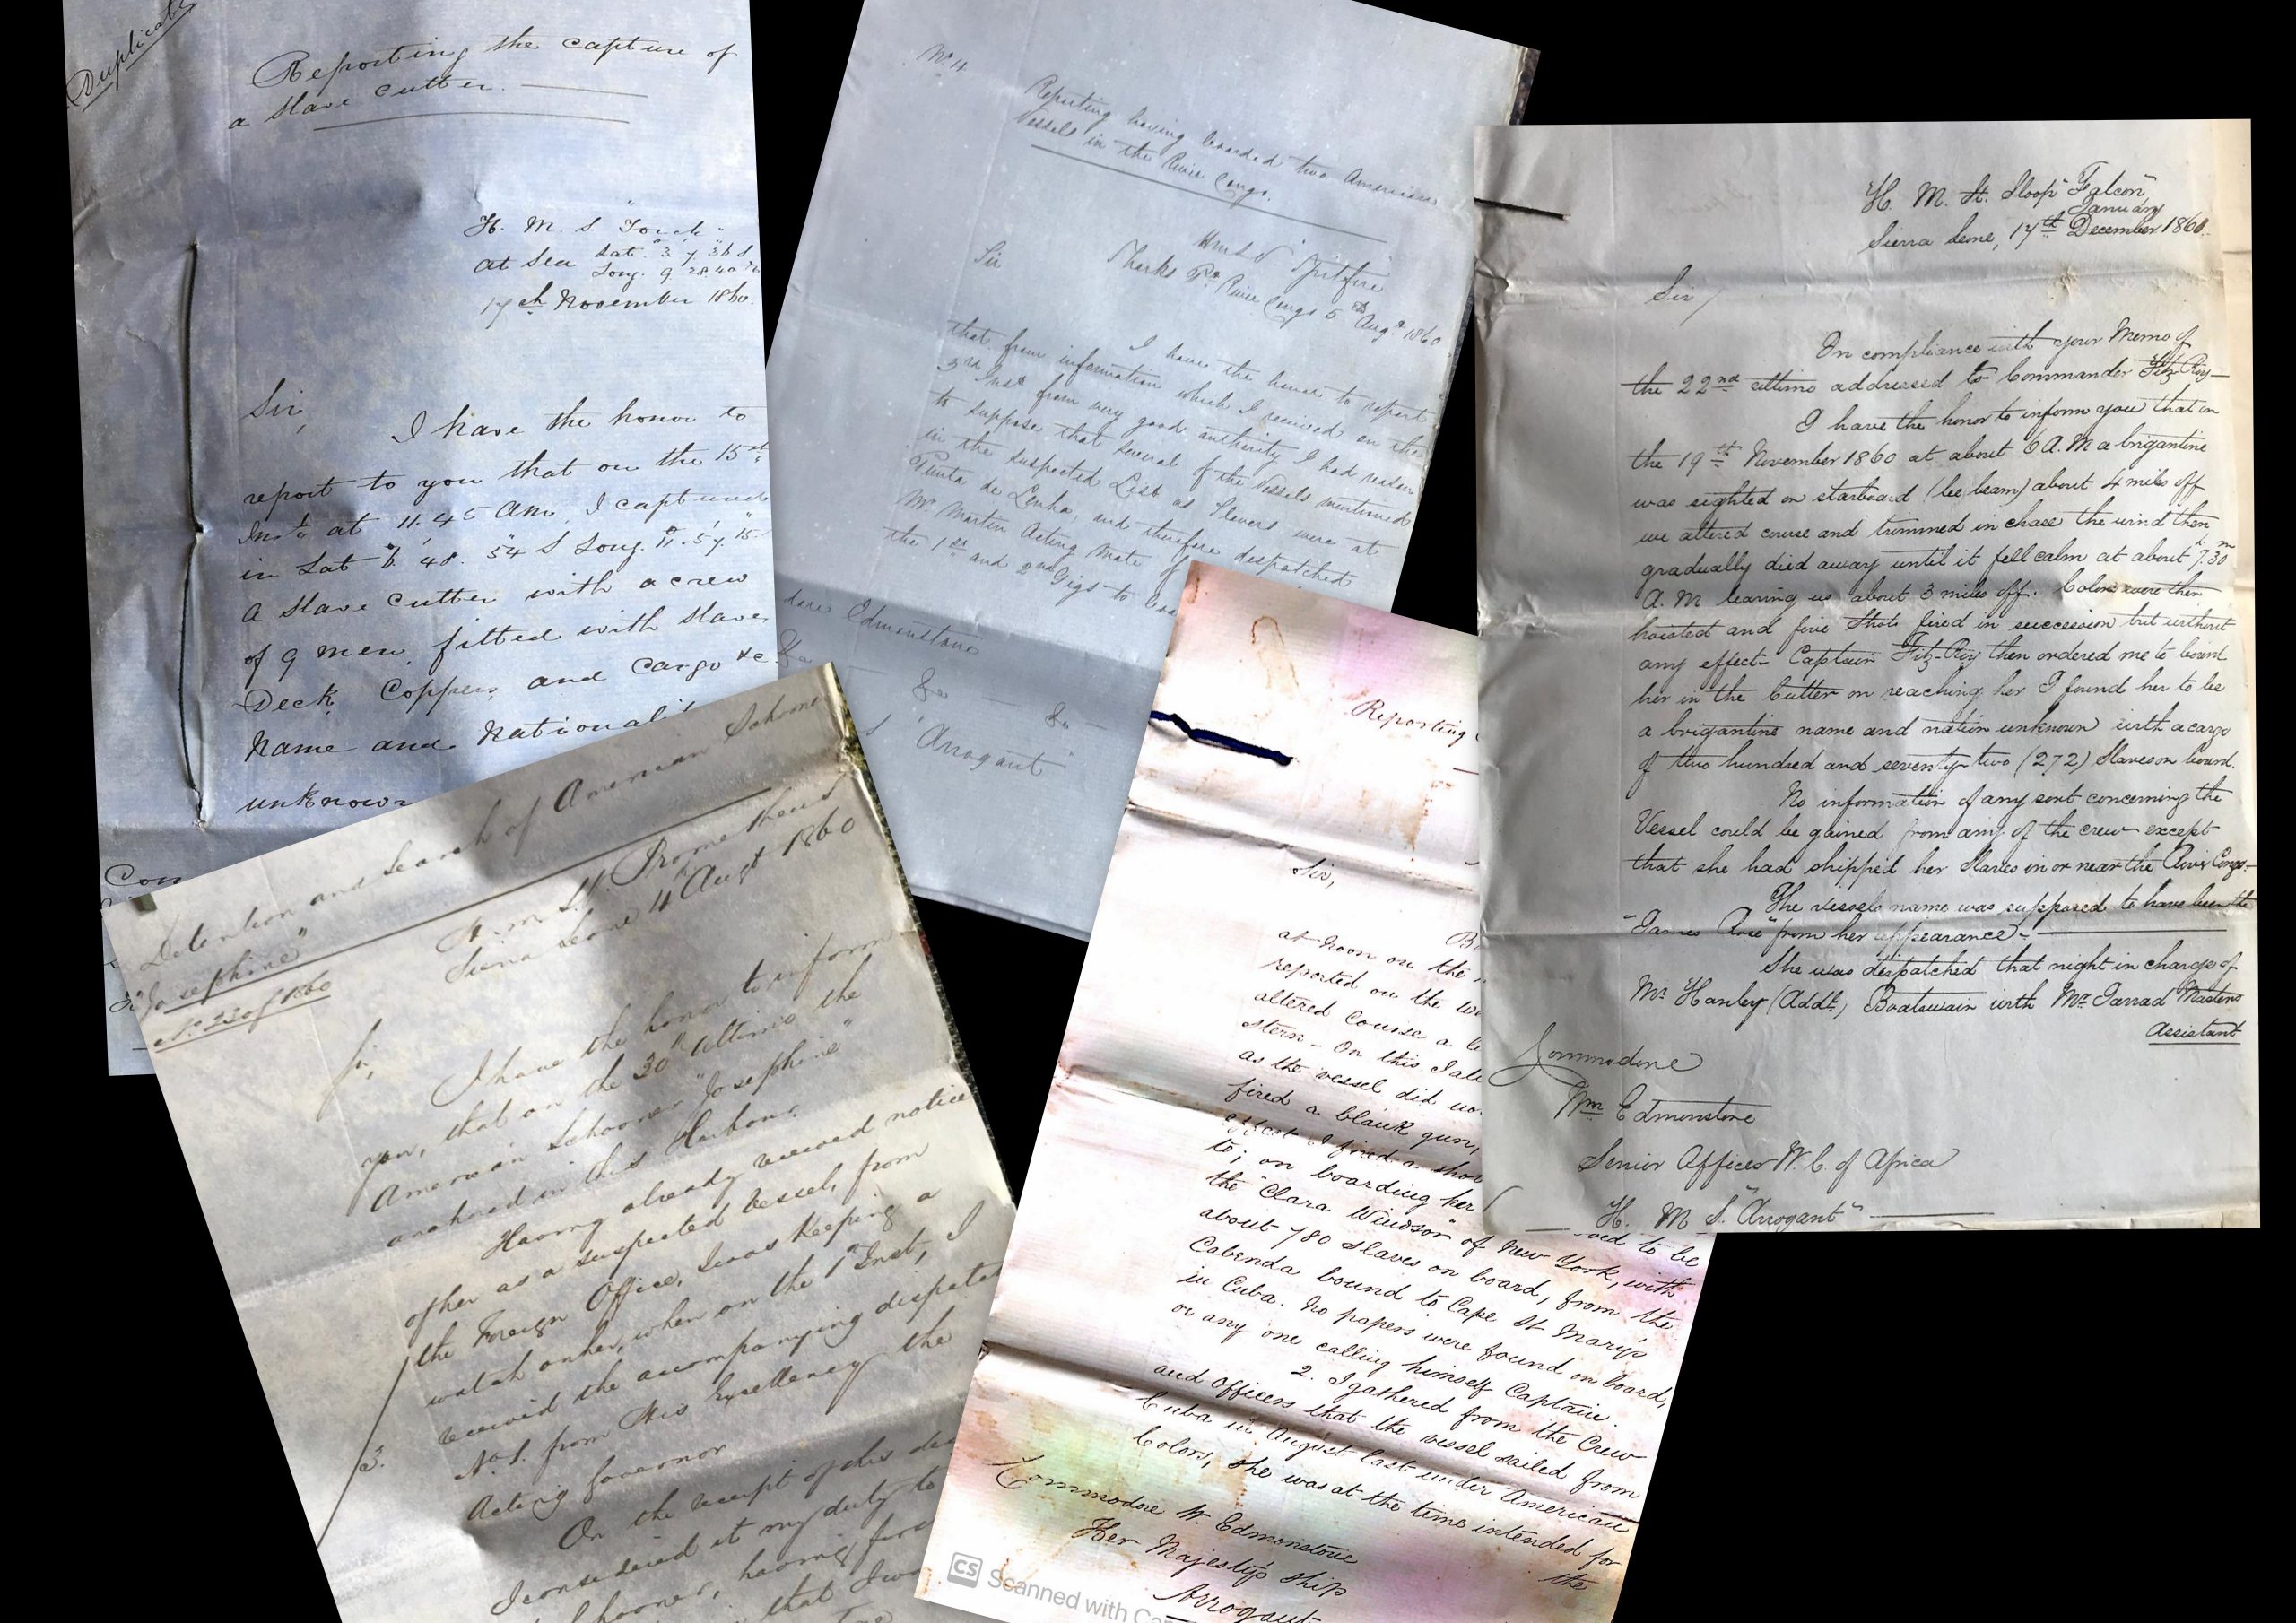 Duplicate
Reporting the capture of
a Slave Cutter.
H. M. S. "Torch"
at Sea Lat. 3° 7' 36 S
Long. 9 28 40
17th November 1860.
Sir,
I have the honor to
report to you that on the 15th
Inst. at 11.45 AM, I captured
in Lat 6. 48. 54 S Long. 11. 57. 15
a Slave Cutter with a crew
of 9 men, fitted with Slave
Deck, Coppers, and Cargo &c &c
Name and Nationality
unknown
Com
No. 4
Reporting having boarded two American
Vessels in the River Congo.
H.M.S. "Spitfire"
Sharks Pt. River Congo 5th Augt. 1860
Sir
I have the honor to report
that from information which I received on the
3rd Inst from very good authority I had reason
to suppose that several of the Vessels mentioned
in the suspected List as Slavers were at
Punta de Lenha, and therefore despatched
Mr. Martin Acting Mate of
the 1st and 2nd Gigs to
dore Edmonstone
&c &c
"Arrogant"
H. M. St. Sloop "Falcon"
January
Sierra Leone, 17th December 1860.
Sir/
In compliance with your Memo of
the 22nd ultimo addressed to Commander Fitz-Roy—
I have the honor to inform you that on
the 19th November 1860 at about 6 A.M a brigantine
was sighted on starboard (lee beam) about 4 miles off
we altered course and trimmed in chase the wind then
gradually died away until it fell calm at about 7.30
A.M leaving us about 3 miles off. Colors were then
hoisted and five Shots fired in succession but without
any effect- Captain Fitz-Roy then ordered me to board
her in the Cutter on reaching her I found her to be
a brigantine name and nation unknown with a cargo
of two hundred and seventy two (272) Slaves on board.
No information of any sort concerning the
Vessel could be gained from any of the crew except
that she had shipped her Slaves in or near the River Congo.—
The vessels name was supposed to have been the
"James Rose" from her appearance.-
She was dispatched that night in charge of
Mr Hanley (Addl.) Boatswain with Mr. Jarrad Masters
Assistant
Commodore
Wm Edmonstone
Senior Officer W. C. of Africa
H. M S. "Arrogant"
Detention and Search of American Schooner
"Josephine"
No. 23 of 1860
H. M. S. Prometheus
Sierra Leone 4 Augt 1860
Sir,
I have the honor to inform
you, that on the 30th Ultimo the
American Schooner "Josephine"
anchored in this Harbour.
Having already received notice
of her as a suspected Vessel, from
the Foreign Office, I was Keeping a
watch on her, when on the 1st Inst, I
received the accompanying dispatch
No. 1. from His Excellency the
Acting Governor
3.
On the receipt of this
I considered it my duty to
Schooner, having first
that I was
Reporting
Sir,
at Noon on the
reported on the
altered Course a
stern - On this
as the vessel did
fired a blank gun,
effect I fired a shot
to; on boarding her
ed to be
the "Clara Windsor" of New York, with
about 780 Slaves on board, from the
Cabenda bound to Cape St Mary's
in Cuba. No papers were found on board,
or any one calling himself Captain.
2. I gathered from the Crew
and Officers that the vessel sailed from
Cuba in August last under American
Colors, she was at the time intended for
the
Commodore W. Edmonstone
Her Majesty's Ship
Arrogant
CS Scanned with Ca